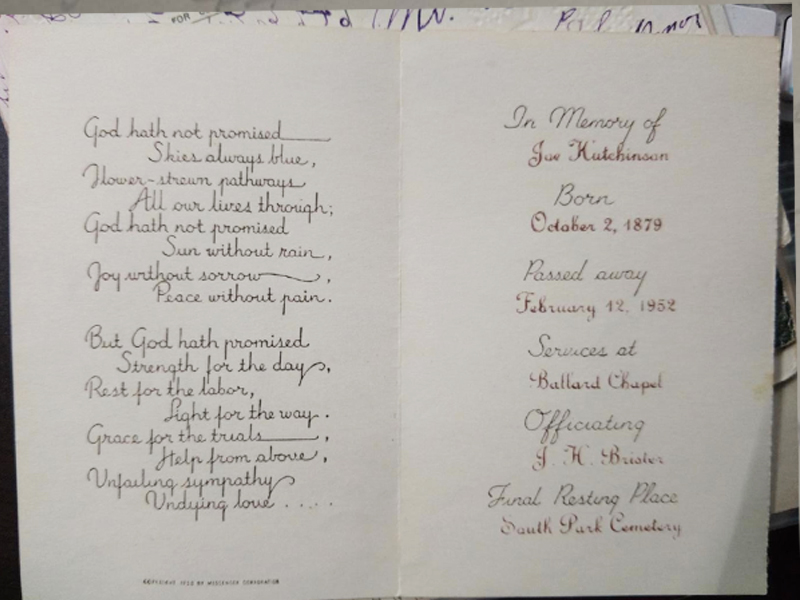 FOR
God hath not promised
Skies always blue,
Flower-strewn pathways
All our lives through;
God hath not promised
Sun without rain,
Joy without sorrow,
Peace without pain.
But God hath promised
Strength for the day,
Rest for the labor,
Light for the way.
Grace for the trials,
Help from above,
Unfailing sympathy
Undying love .....
COPYRIGHT BY MESSENGER CORPORATION
In Memory of
Joe Hutchinson
Born
October 2, 1879
Passed away
February 12, 1952
Services at
Ballard Chapel
Officiating
J. H. Brister
Final Resting Place
South Park Cemetery